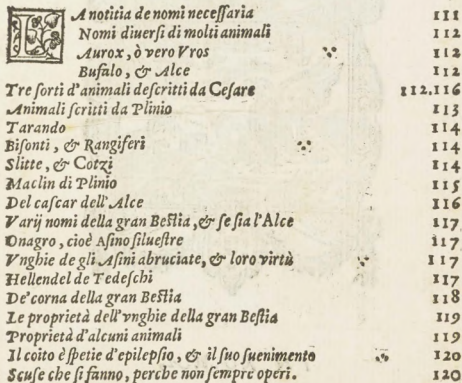 LA notitia de nomi neceſſaria 111
Nomi diuerſi di molti animali 112
Aurox, ò vero Vros 112
Bufalo, & Alce 112
Tre ſorti d'animali deſcritti da Ceſare 112.116
Animali ſcritti da Plinio 113
Tarando 114
Biſonti, & Rangiferi 114
Slitte, & Cotzi 114
Maclin di Plinio 115
Del caſcar dell'Alce 116
Varij nomi della gran Beſtia, & ſe ſia l'Alce 117
Onagro, cioè Aſino ſilueſtre 117
Vnghie de gli Aſini abruciate, & loro virtù 117
Hellendel de Tedeſchi 117
De'corna della gran Beſtia 118
Le proprietà dell'vnghie della gran Beſtia 119
Proprietà d'alcuni animali 119
Il coito è ſpetie d'epilepſio, & il ſuo ſuenimento 120
Scuſe che ſi fanno, perche non ſempre operi. 120